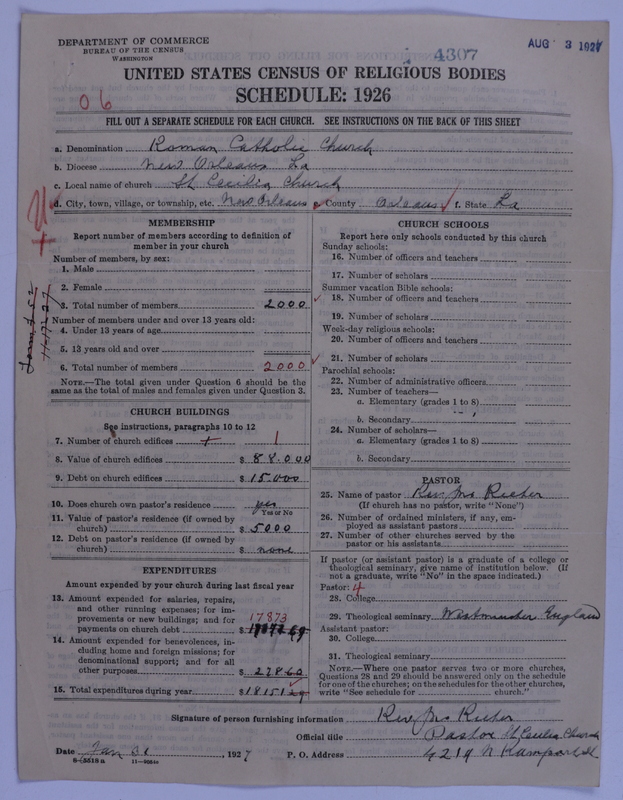 DEPARTMENT OF COMMERCE
BUREAU OF THE CENSUS
WASHINGTON
4307
AUG 3 1927
UNITED STATES CENSUS OF RELIGIOUS BODIES
SCHEDULE: 1926
06
FILL OUT A SEPARATE SCHEDULE FOR EACH CHURCH. SEE INSTRUCTIONS ON THE BACK OF THIS SHEET
a. Denomination Roman Catholic Church
b. Diocese New Orleans La
c. Local name of church St Cecilia Church
d. City, town, village, or township, etc. New Orleans e. County Orleans f. State La
MEMBERSHIP
Report number of members according to definition of
member in your church
Number of members, by sex:
1. Male
2. Female
3. Total number of members 2000
Number of members under and over 13 years old:
4. Under 13 years of age
5. 13 years old and over
6. Total number of members 2000
NOTE.—The total given under Question 6 should be the
same as the total of males and females given under Question 3.
CHURCH BUILDINGS
See instructions, paragraphs 10 to 12
7. Number of church edifices 1
8. Value of church edifices $ 88.000
9. Debt on church edifices $ 15.000
10. Does church own pastor's residence yes
Yes or No
11. Value of pastor's residence (if owned by
church) $ 5000
12. Debt on pastor's residence (if owned by
church) $ none
EXPENDITURES
Amount expended by your church during last fiscal year
13. Amount expended for salaries, repairs,
and other running expenses; for im-
provements or new buildings; and for 17873
payments on church debt $
14. Amount expended for benevolences, in-
cluding home and foreign missions; for
denominational support; and for all
other purposes $ 278 60
15. Total expenditures during year $ 18151 29
CHURCH SCHOOLS
Report here only schools conducted by this church
Sunday schools:
16. Number of officers and teachers
17. Number of scholars
Summer vacation Bible schools:
18. Number of officers and teachers
19. Number of scholars
Week-day religious schools:
20. Number of officers and teachers
21. Number of scholars
Parochial schools:
22. Number of administrative officers
23. Number of teachers—
a. Elementary (grades 1 to 8)
b. Secondary
24. Number of scholars—
a. Elementary (grades 1 to 8)
b. Secondary
PASTOR
25. Name of pastor Rev. Jno
(If church has no pastor, write "None")
26. Number of ordained ministers, if any, em-
ployed as assistant pastors
27. Number of other churches served by the
pastor or his assistants
If pastor (or assistant pastor) is a graduate of a college or
theological seminary, give name of institution below. (If
not a graduate, write "No" in the space indicated.)
Pastor: 4
28. College
29. Theological seminary Westminster England
Assistant pastor:
30. College
31. Theological seminary
NOTE.—Where one pastor serves two or more churches,
Questions 28 and 29 should be answered only on the schedule
for one of the churches; on the schedules for the other churches,
write "See schedule for church."
Signature of person furnishing information Rev. Jno
Official title Pastor St Cecilia Church
Date Jan 31, 1927 P. O. Address 4219 N Rampart St
8-5518 a